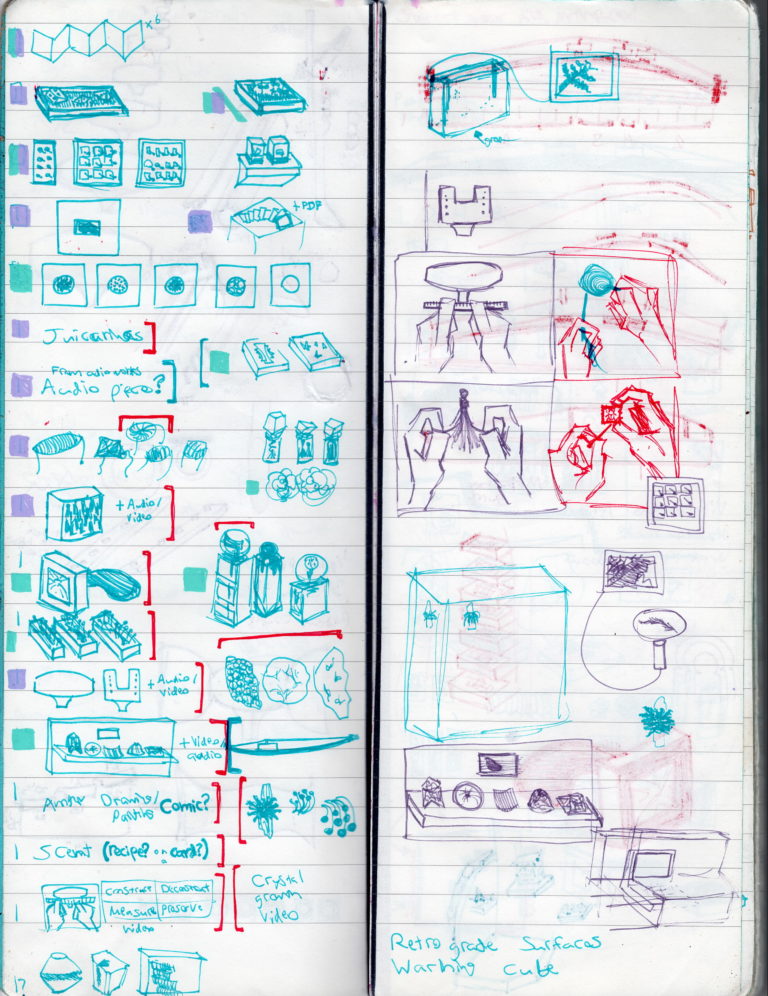 x6
+ PDF
Juicarinas
From audio works
Audio piece?
+ Audio/
video
+ Audio/
video
+ Video/
audio
Another Drawing/
Painting Comic?
Scent (recipe? on a card?)
Construct Deconstruct
Measure Preserve
video
Crystal
grown
video
1?
Retrograde Surfaces
Warning Cube